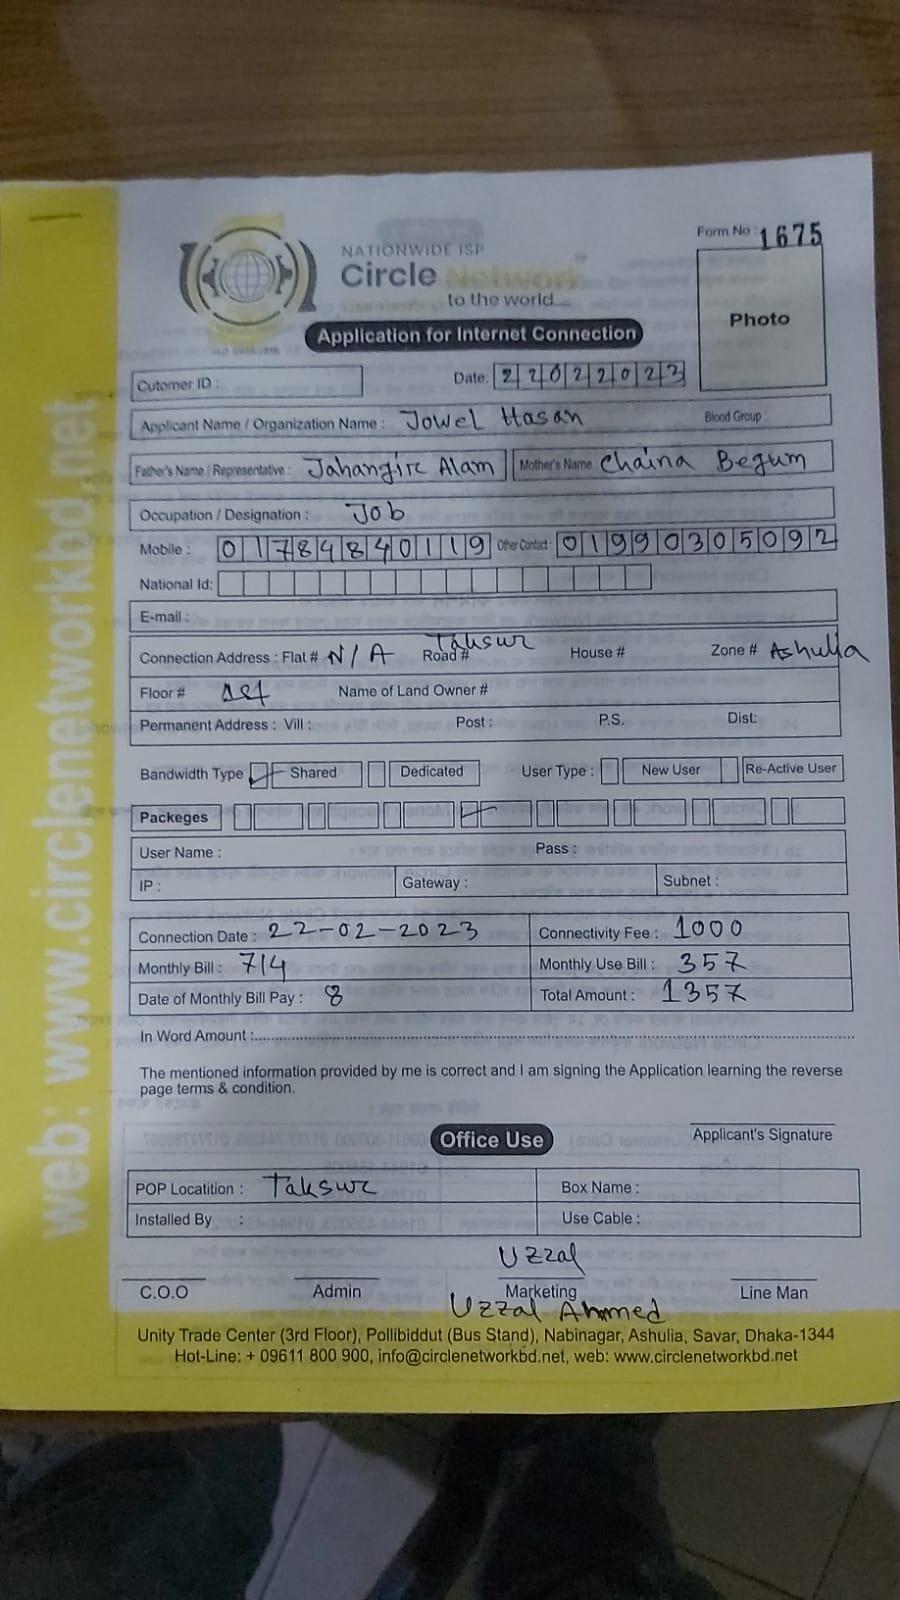 Form No : 1675
NATIONWIDE ISP
Circle Network
to the world...
Photo
Application for Internet Connection
Cutomer ID :
Date: 22022023
Applicant Name / Organization Name : Jowel Hasan Blood Group :
Father's Name / Representative : Jahangir Alam Mother's Name Chaina Begum
Occupation / Designation : Job
Mobile : 01784840119 Other Contact : 01990305092
National Id:
E-mail :
Connection Address : Flat # N/A Road # Taksur House # Zone # Ashulia
Floor # 1st Name of Land Owner #
Permanent Address : Vill : Post : P.S. Dist:
Bandwidth Type Shared Dedicated User Type : New User Re-Active User
Packeges
User Name : Pass :
IP : Gateway : Subnet :
Connection Date : 22-02-2023 Connectivity Fee : 1000
Monthly Bill : 714 Monthly Use Bill : 357
Date of Monthly Bill Pay : 8 Total Amount : 1357
In Word Amount :
The mentioned information provided by me is correct and I am signing the Application learning the reverse
page terms & condition.
Applicant's Signature
Office Use
POP Locatition : Taksur Box Name :
Installed By : Use Cable :
Uzzal
C.O.O Admin Marketing Line Man
Uzzal Ahmmed
Unity Trade Center (3rd Floor), Pollibiddut (Bus Stand), Nabinagar, Ashulia, Savar, Dhaka-1344
Hot-Line: + 09611 800 900, info@circlenetworkbd.net, web: www.circlenetworkbd.net
web: www.circlenetworkbd.net